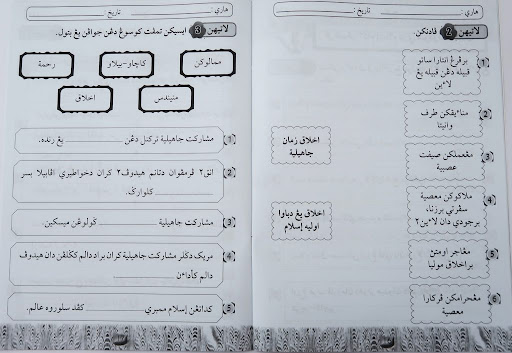 هاري: تاريخ:
لاتيهن 2 ڤادنکن.
1 برڤرڠ انتارا ساتو
قبيله دڠن قبيله يڠ
لاءين
2 مناءيقکن طرف
وانيتا
3 مڠعملکن صيفت
عصبية
4 ملاکوکن معصية
سڤرتي برزنا،
برجودي دان لاءين٢
5 مڠاجر اومتڽ
براخلاق موليا
6 مڠحرامکن ڤرکارا
معصية
اخلاق زمان
جاهيلية
اخلاق يڠ دباوا
اوليه إسلام
هاري: تاريخ:
لاتيهن 3 ايسيکن تمڤت کوسوڠ دڠن جواڤن يڠ بتول.
ممالوکن
کاچاو-بيلاو
رحمة
منيندس
اخلاق
1 مشارکت جاهيلية ترکنل دڠن يڠ رنده.
2 انق٢ ڤرمڤوان دتانم هيدوڤ٢ کران دخواطيري اڤابيلا بسر
کلوارݢ.
3 مشارکت جاهيلية ݢولوڠن ميسکين.
4 مريک دݢلر مشارکت جاهيلية کران براد دالم کݢلڤن دان هيدوڤ
دالم کأداءن
5 کداتڠن إسلام ممبري کڤد سلوروه عالم.